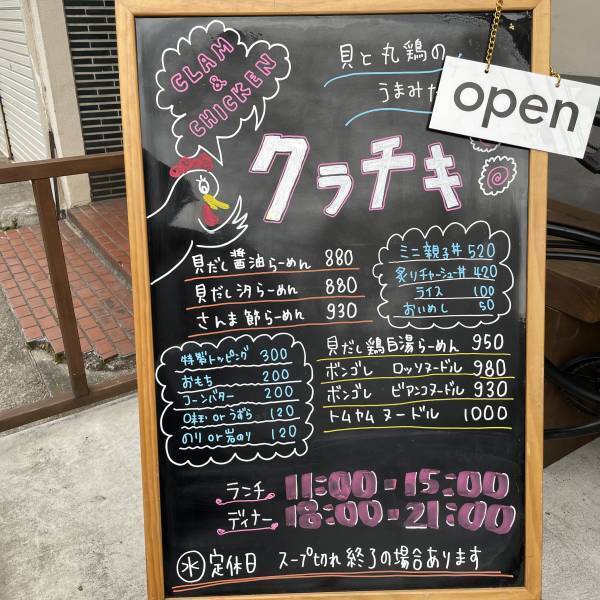 CLAM
&
CHICKEN
貝と丸鶏の
うまみた
open
クラチキ
貝だし醤油らーめん 880
貝だし汐らーめん 880
さんま節らーめん 930
ミニ親子丼 520
炙りチャーシュー丼 420
ライス 100
おいめし 50
特製トッピング 300
おもち 200
コーンバター 200
味玉 or うずら 120
のり or 岩のり 120
貝だし鶏白湯らーめん 950
ボンゴレ ロッソヌードル 980
ボンゴレ ビアンコヌードル 930
トムヤム ヌードル 1000
ランチ 11:00-15:00
ディナー 18:00-21:00
㊌定休日 スープ切れ終了の場合あります